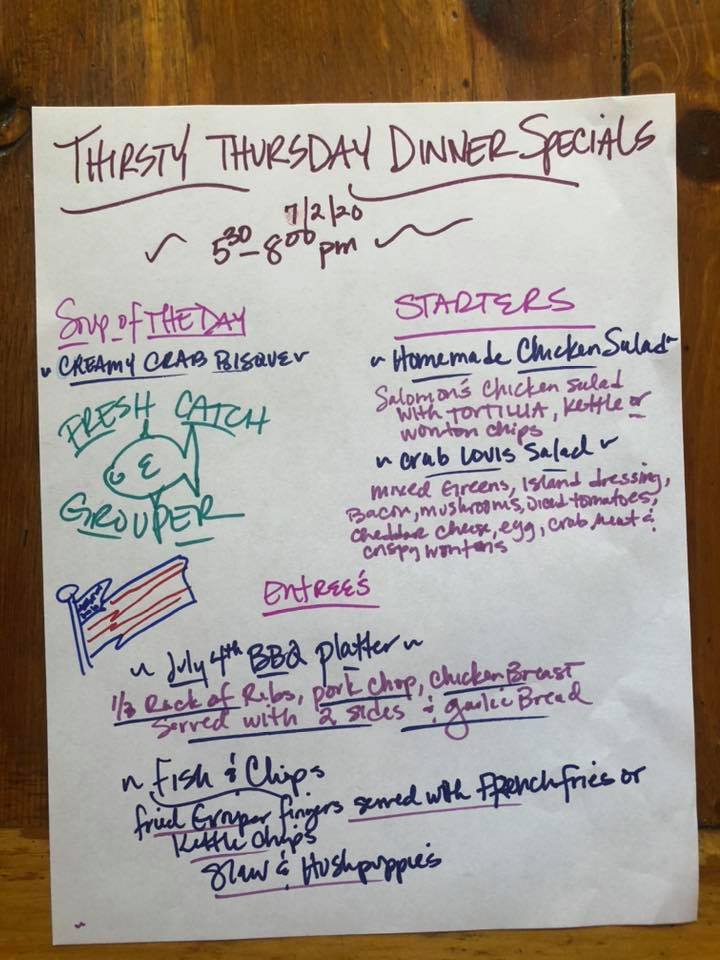 THIRSTY THURSDAY DINNER SPECIALS
7/2/20
5³⁰-8⁰⁰ pm
Soup of THE DAY
~ CREAMY CRAB BISQUE ~
FRESH CATCH
GROUPER
STARTERS
~ Homemade Chicken Salad ~
Salomon's Chicken Salad
with TORTILLIA, Kettle or
wonton chips
~ Crab Louis Salad ~
mixed Greens, Island dressing,
Bacon, mushrooms, Diced tomatoes,
cheddar cheese, egg, crab meat &
crispy wontons
ENTREE'S
~ July 4th BBQ platter ~
1/2 Rack of Ribs, pork chop, chicken Breast
Served with 2 sides & garlic Bread
~ Fish & Chips
fried Grouper fingers served with French fries or
Kettle Chips
Slaw & Hushpuppies